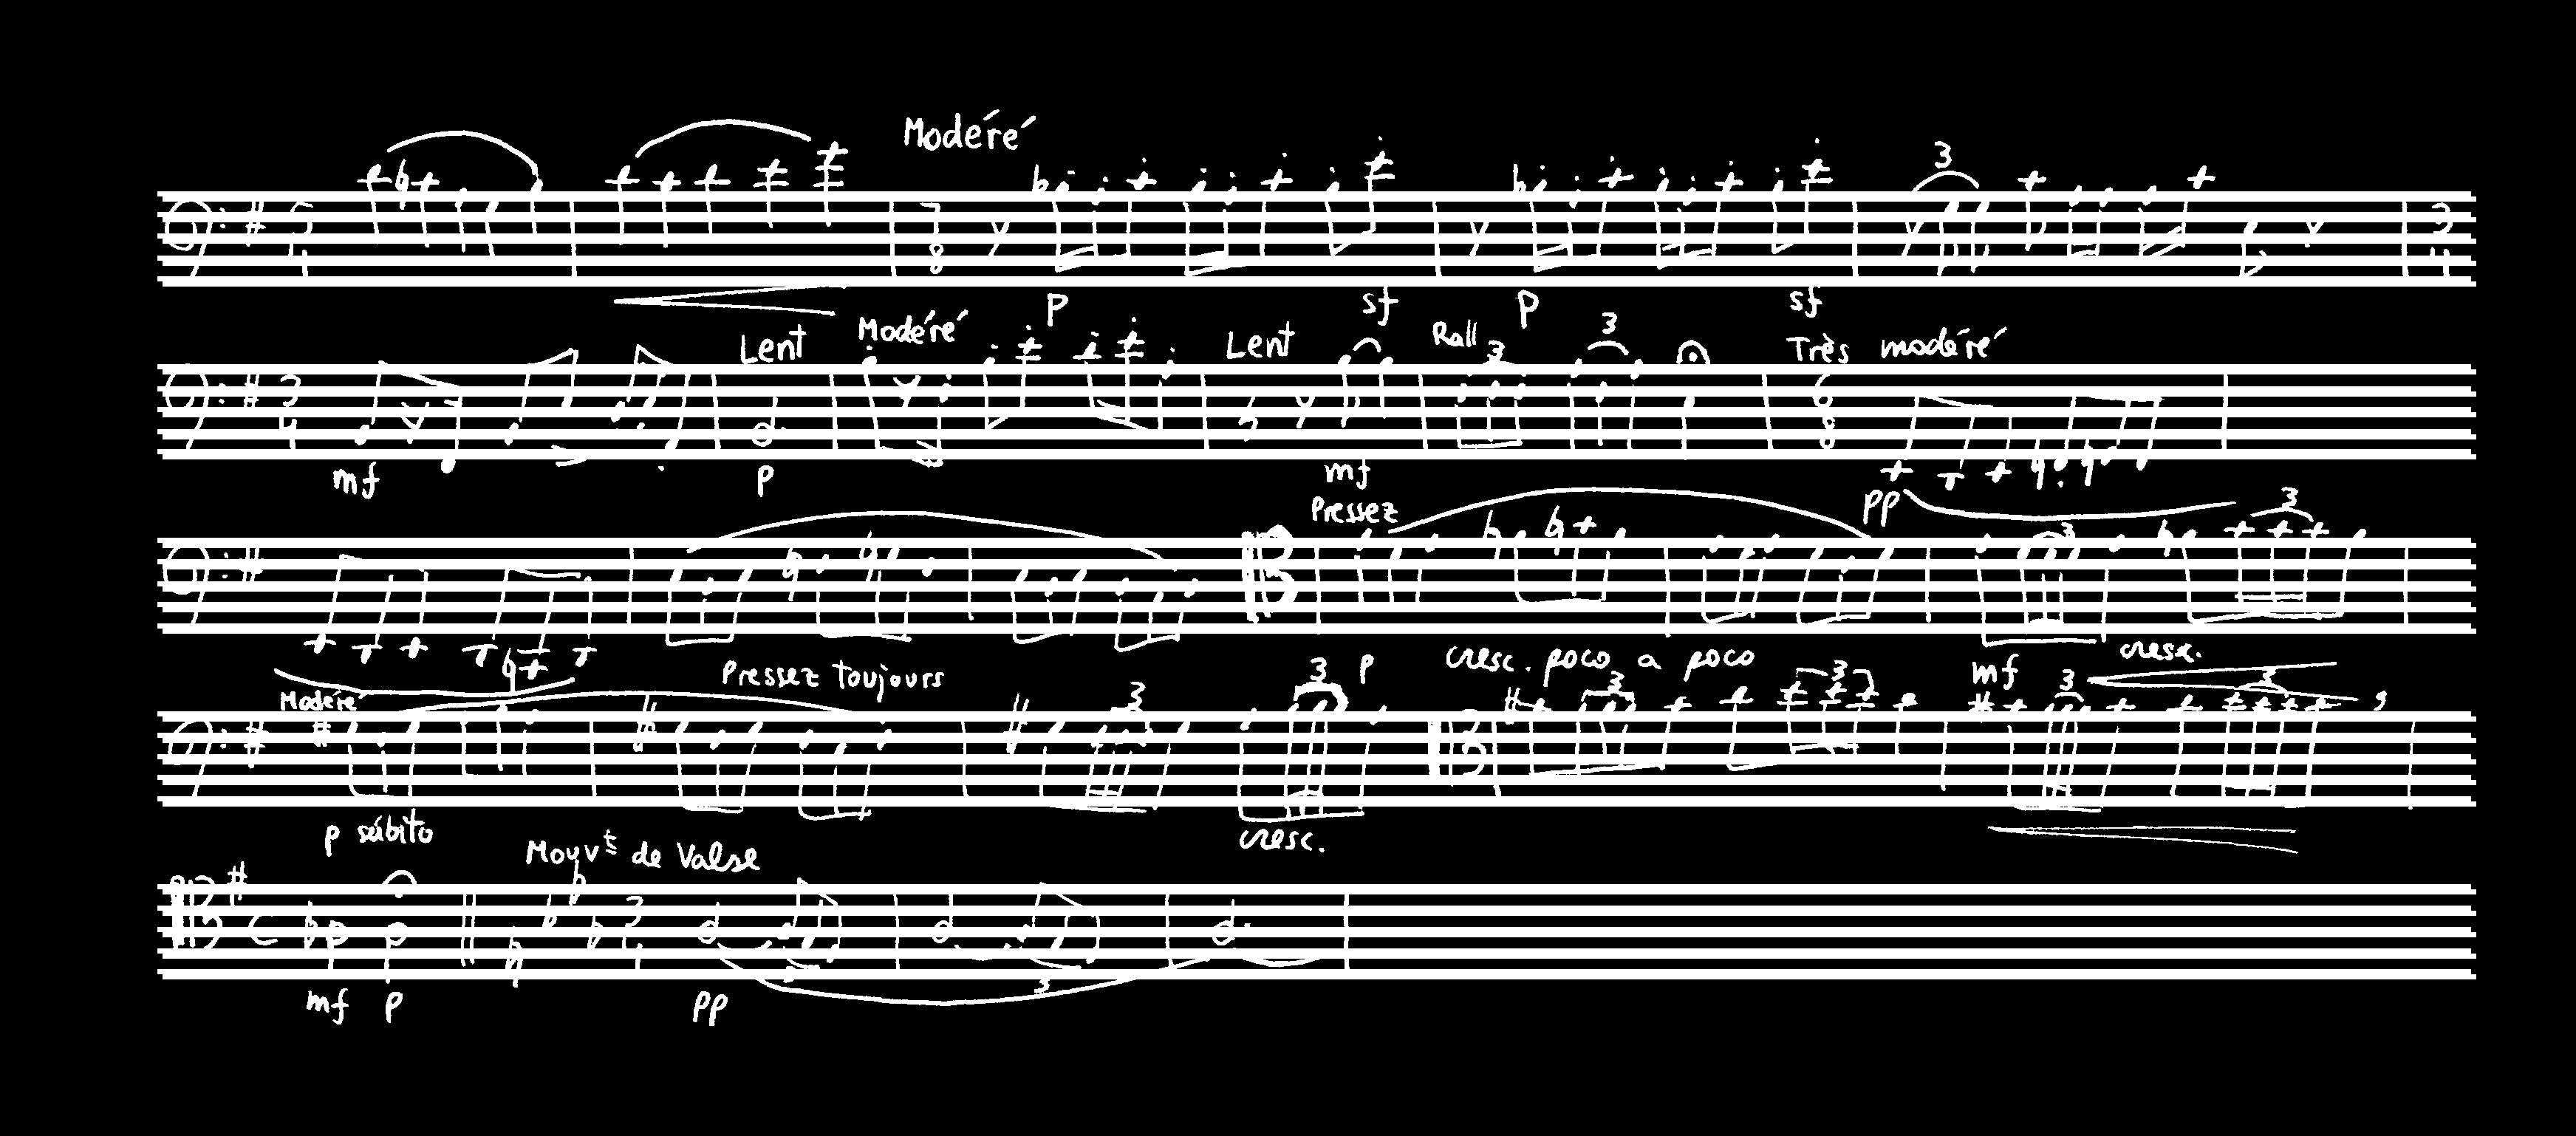 Modéré
3
p sf p sf
Lent Modéré Lent Rall 3 3 Très modéré
mf p mf pp
Pressez 3 3
p cresc. poco a poco mf cresc.
Modéré Pressez toujours 3 3 3 3 3 3
p súbito cresc.
Mouvt de Valse
3
mf p pp